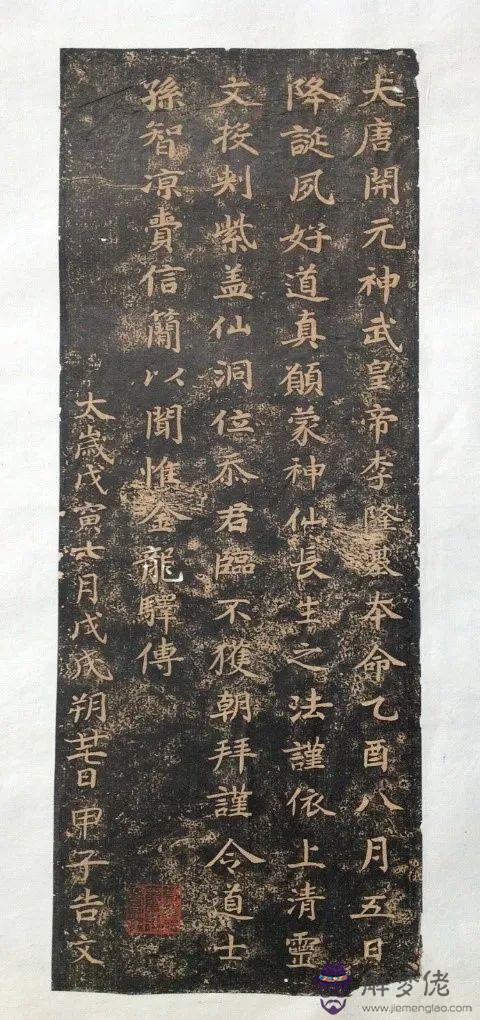 大唐開元神武皇帝李隆基本命乙酉八月五日
降誕夙好道真願蒙神仙長生之法謹依上清靈
文投刺紫盖仙洞位忝君臨不獲朝拜謹令道士
孫智凉賷信簡以聞惟金龍驛傳
太歲戊寅七月戊戌朔廿七日甲子告文
解夢佬
www.jiemenglao.com